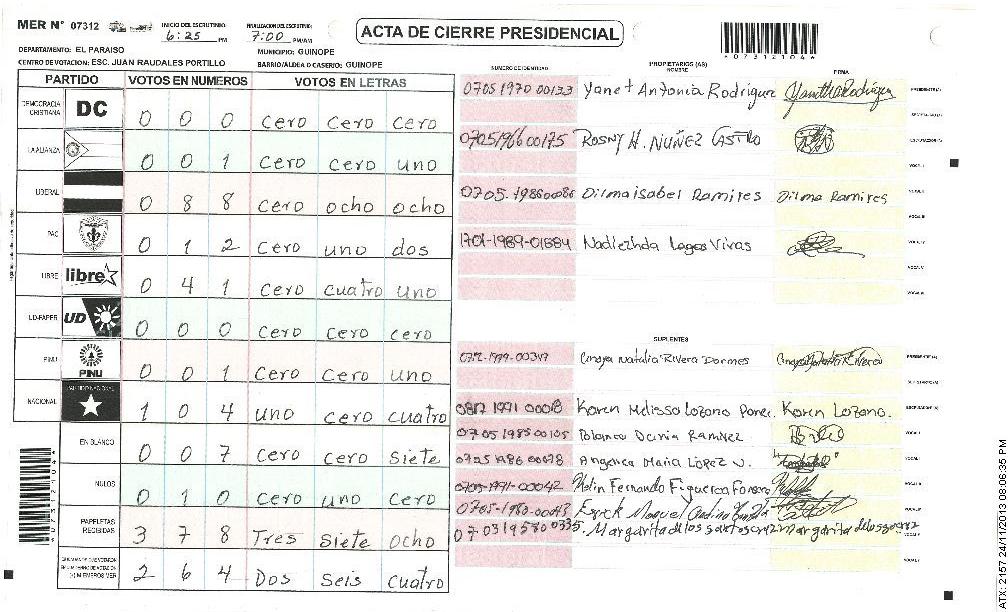 MER N° 07312 INICIO DEL ESCRUTINIO 6:25 PM FINALIZACION DEL ESCRUTINIO 7:00 PM/AM
ACTA DE CIERRE PRESIDENCIAL
*073121046*
DEPARTAMENTO: EL PARAISO MUNICIPIO: GUINOPE
CENTRO DE VOTACION: ESC. JUAN RAUDALES PORTILLO BARRIO/ALDEA O CASERIO: GUINOPE
PARTIDO VOTOS EN NUMEROS VOTOS EN LETRAS
DEMOCRACIA CRISTIANA DC 0 0 0 cero cero cero
LA ALIANZA 0 0 1 cero cero uno
LIBERAL 0 8 8 cero ocho ocho
PAC 0 1 2 cero uno dos
LIBRE libre 0 4 1 cero cuatro uno
UD-FAPER UD 0 0 0 cero cero cero
PINU PINU 0 0 1 cero cero uno
NACIONAL PARTIDO NACIONAL 1 0 4 uno cero cuatro
EN BLANCO 0 0 7 cero cero siete
NULOS 0 1 0 cero uno cero
PAPELETAS RECIBIDAS 3 7 8 Tres siete ocho
2 6 4 Dos seis cuatro
NUMERO DE IDENTIDAD PROPIETARIOS (AS) NOMBRE FIRMA
0705 1970 00133 Yanet Antonia Rodriguez PRESIDENTE(A)
SECRETARIO(A)
0705196600175 Rosny H. Nuñez Castro ESCRUTADOR(A)
VOCAL I
0705-1986 00086 Dilma isabel Ramires Dilma Ramires VOCAL II
VOCAL III
1701-1989-01884 Nadiezhda Lagos Vivas VOCAL IV
VOCAL V
SUPLENTES
Natalia Rivera PRESIDENTE(A)
SECRETARIO(A)
1991 Karen Melissa Lozano Karen Lozano. ESCRUTADOR(A)
0705 1985 00105 Ramirez
0705 1986 00078 Angelica Maria López
0705-1991-00042 Fernando Figueroa Fonseca
0705-1980-00043
Margarita de los santos cruz margarita de los s cruz
ATX: 2157 24/11/2013 08:06:35 PM